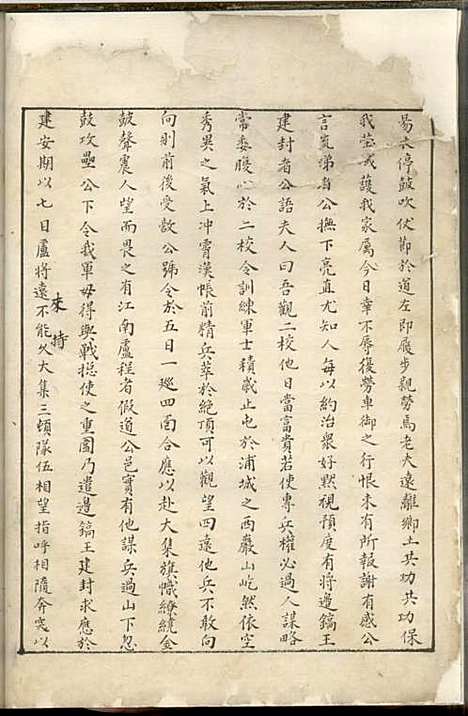 易衣停鼓吹伏節於道左即屨步親勞焉老夫遠離鄉土共功共功保
我塋域護我家屬今日幸不辱復勞車御之行恨未有所報謝有感公
言嵬涕者公撫下亮直尤知人每以約治衆好黙視預度有將邉鎬王
建封者公語夫人曰吾觀二校他日當富貴若使專兵權必過人謀略
常委腹心於二校令訓練軍士積歲止屯於浦城之西巖山屹然依空
秀異之氣上冲霄漢帳前精兵萃於絶頂可以觀望四遠他兵不敢向
向則前後受敵公號令於五日一廵四面合應以赴大集旗幟繚繞金
鼓聲震人望而畏之有江南盧程者假道公邑實有他謀兵過山下忽
鼓攻壘公下令我軍毋得與戰捴使之重圍乃遣邉鎬王建封求應於
建安期以七日盧將遠來不能久持大集三頓隊伍相望指呼相隨奔突以